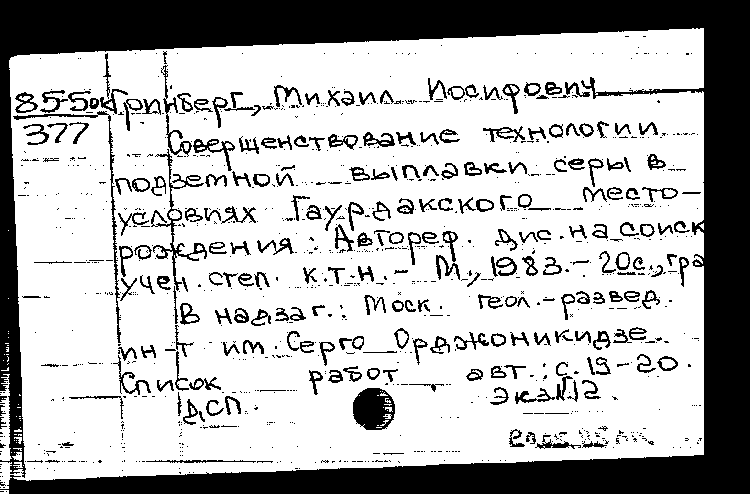 85-5ок Гринберг, Михаил Иосифович
377
Совершенствование технологии
подземной выплавки серы в
условиях Гаурдакского место-
рождения: Автореф. дис. на соиск
учен. степ. к.т.н. – М., 1983. – 20с., гра
В надзаг.: Моск. геол.-развед.
ин-т им. Серго Орджоникидзе.
Список работ авт.: с. 19-20.
ДСП. Экз.N12.